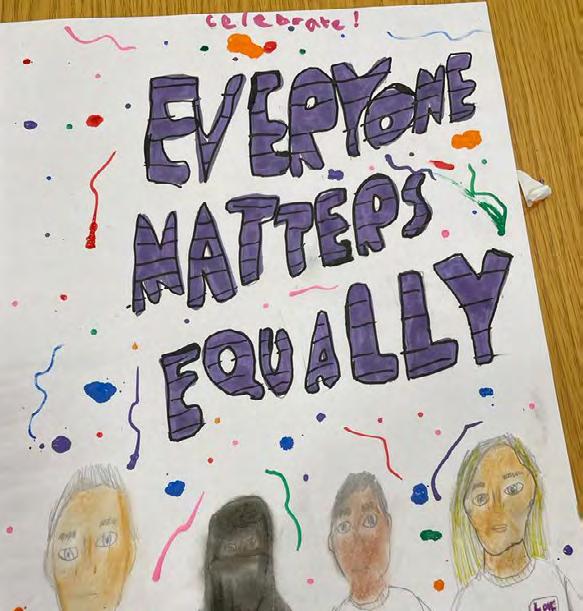 celebrate!
EVERYONE
MATTERS
EQUALLY